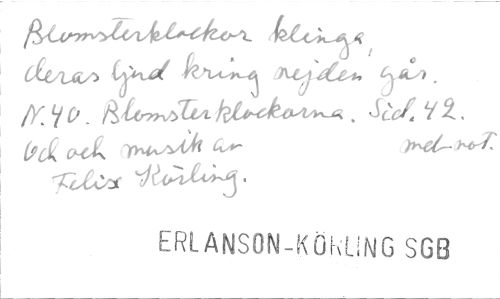 Blomsterklockor klinga,
deras ljud kring nejden går.
N. 40. Blomsterklockorna. Sid. 42.
Ord och musik av med not.
Felix Körling.
ERLANSON-KÖRLING SGB